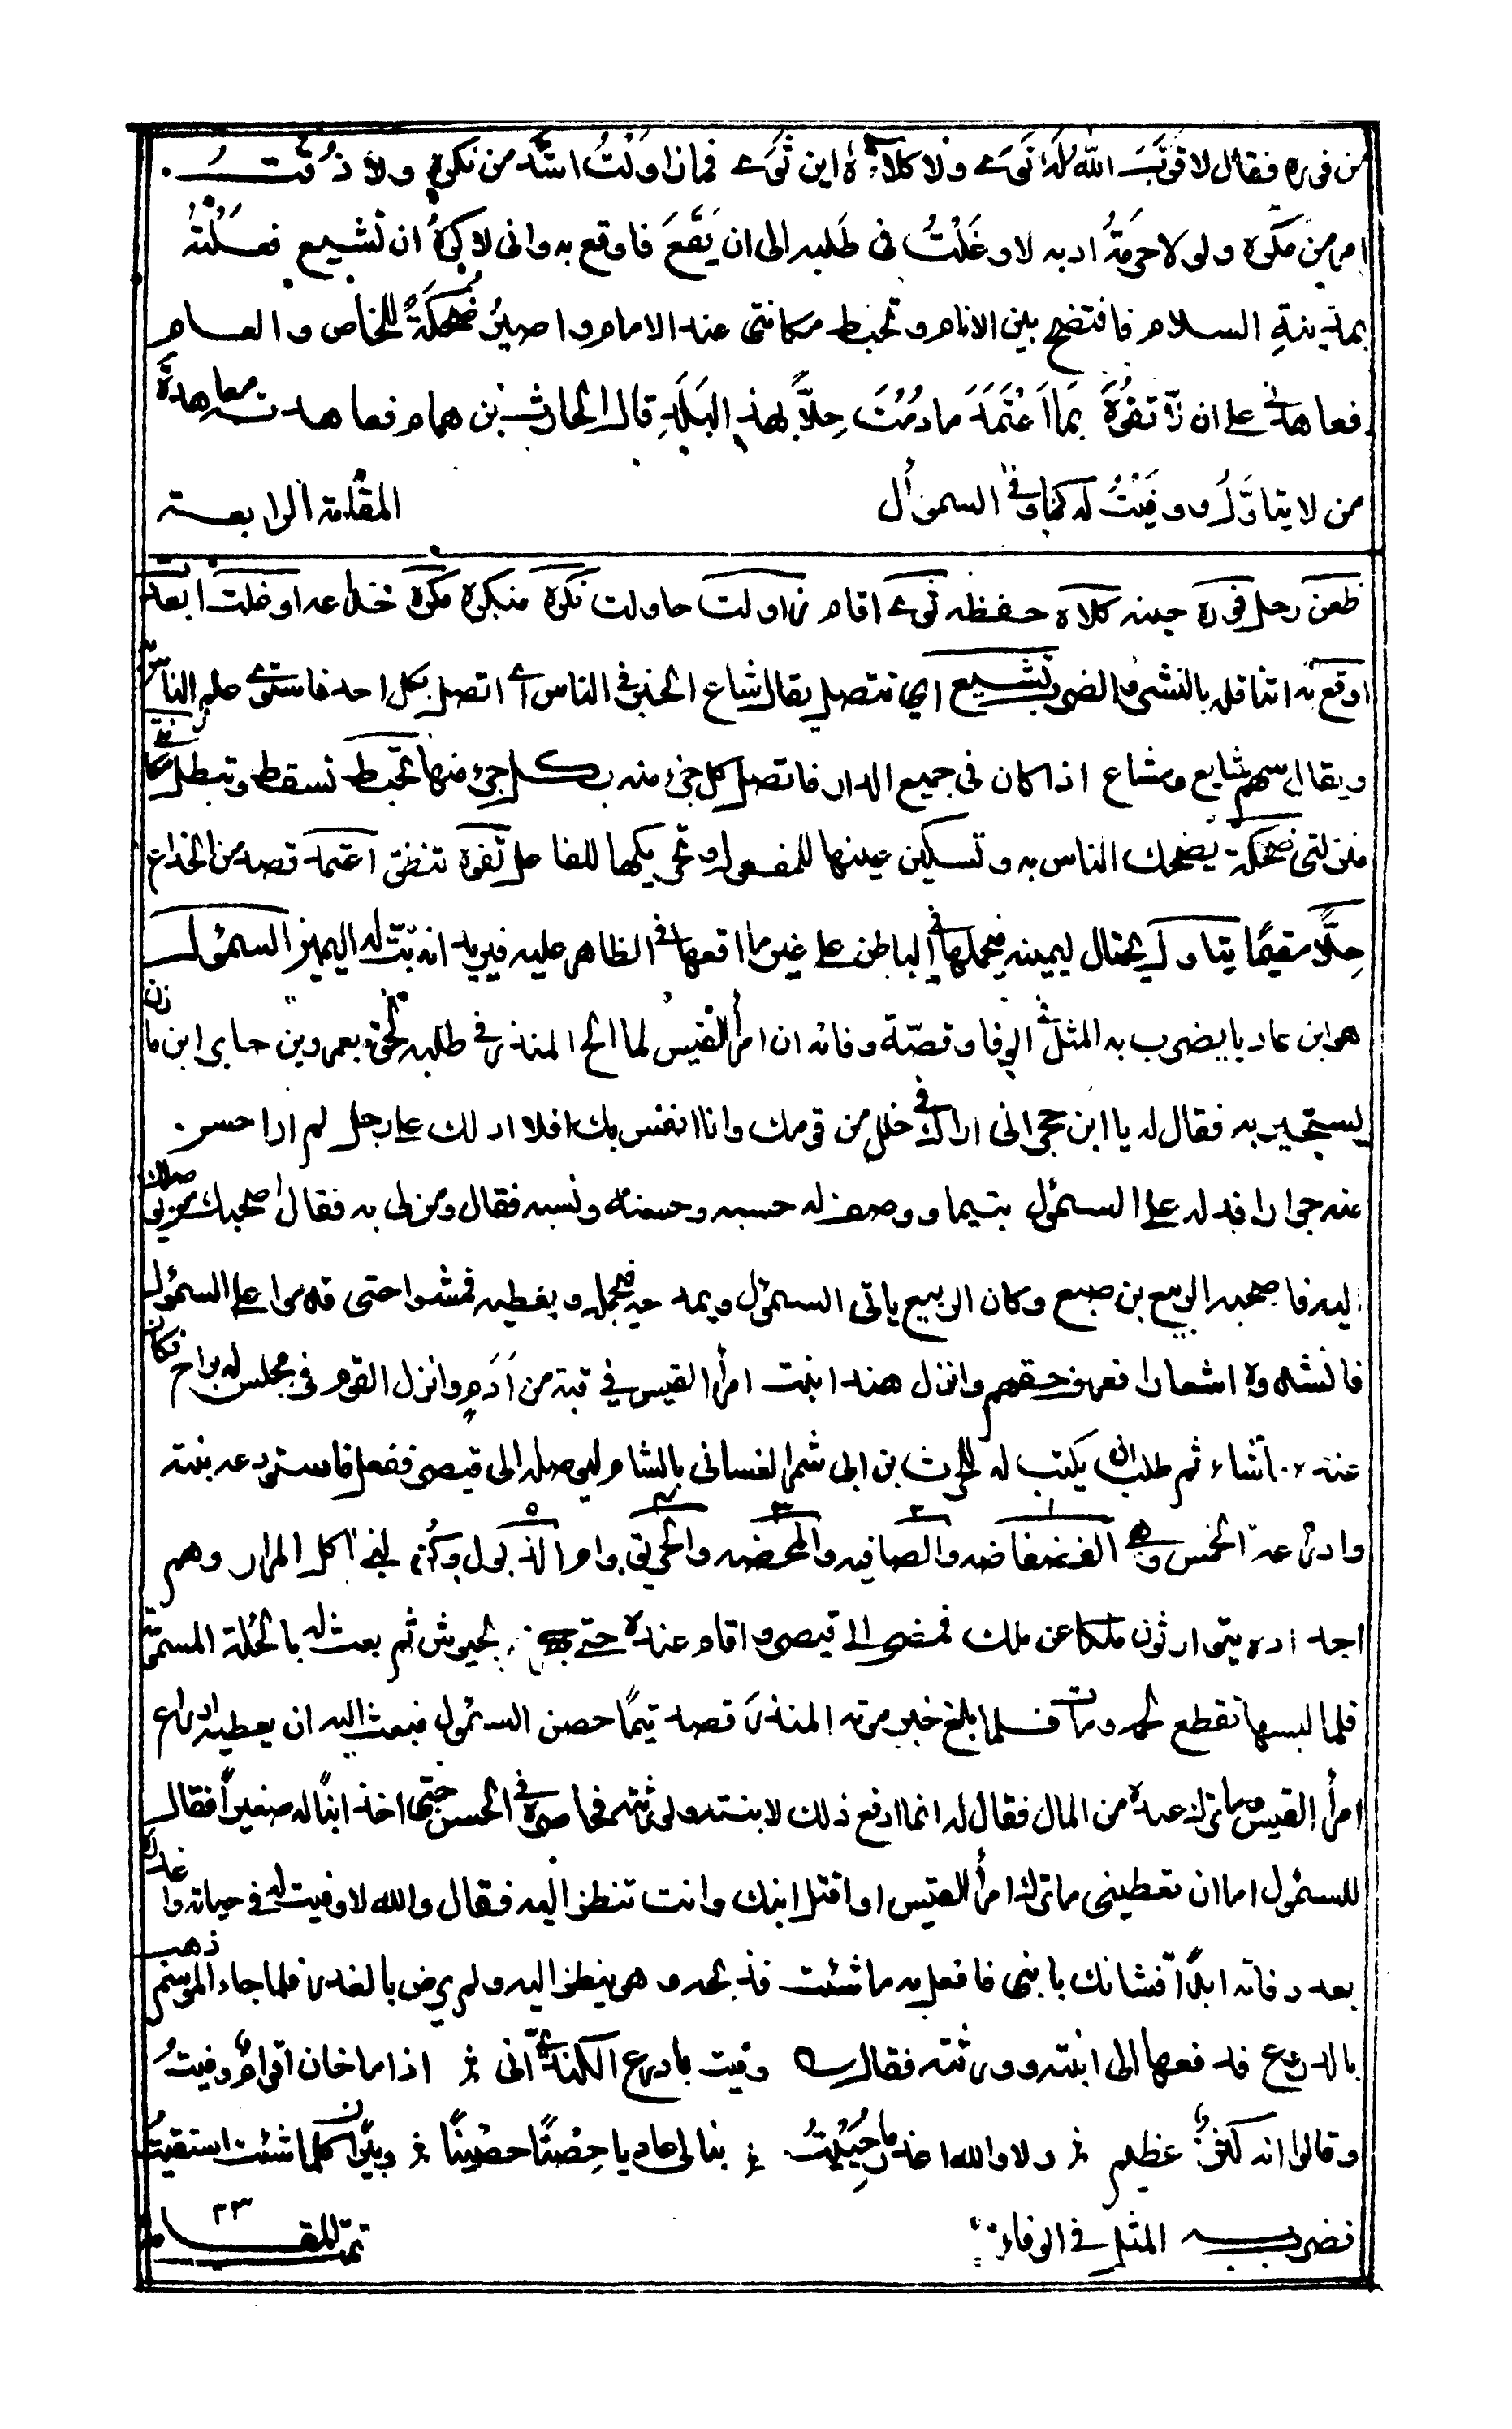 من فوره فقال لا قرّب الله له نوى ولا كلاه اين ثوى فما زاولت اشد من نكره ولا ذقت
امر من مكره ولولا حرمة ادبه لاوغلت في طلبه الى ان يقع فاوقع به واني لاكره ان تشيع فعلته
بمدينة السلام فافتضح بين الانام وتحبط مكانتي عند الامام واصير ضحكة للخاص والعام
فعاهدني على ان لا تفوه بما اعتمد ما دمت حلا بهذا البلد قال الحارث بن همام فعاهدته معاهدة
من لا يتاول ووفيت له كما وفى السموأل المقامة الرابعة
ظعن رحل فوره حينه كلاه حفظه ثوى اقام زاولت حاولت نكره منكره مكره خداعه اوغلت ابعدت
اوقع به اثناقله بالشر والضرب تشيع اي تتصل يقال شاع الخبر في الناس اي اتصل بكل احد فاستوى علم الناس
ويقال سهم شايع ومشاع اذا كان في جميع الدار فاتصل كل جزء منه بكل جزء منها تحبط تسقط وتبطل مكانتي
منزلتي ضحكة يضحك الناس به وتسكين عينها للمفعول وتحريكها للفاعل تفوه تنطق اعتمد قصد من الخداع
حلّا مقيمًا يتاول يحتال ليمينه فيحملها في الباطن على غير ما اوقعها في الظاهر عليه فيريد انه بتت له اليمين السمول
هو ابن عاديا يضرب به المثل في الوفا وقصة وفائه ان امرأ القيس لما الح المنذر في طلبه لحق بعمرو بن جابر ابن مازن
ليستجير به فقال له يا ابن حجر اني اراك في خلل من قومك وانا انفس بك افلا ادلك على رجل لم ار احسن
منه جوارا فدله على السمول بتيما ووصف له حسبه وحسنه ونسبه فقال ومن لي به فقال اصحبك من يوصلك
اليه فاصحبه الربيع بن ضبع وكان الربيع ياتي السمول ويمدحه فيحمله ويعطيه فمشوا حتى قدموا على السمول
فانشدوه اشعارا فعرف حقهم وانزل هند ابنت امرأ القيس في قبة من ادم وانزل القوم في مجلس له براح فكان
عنده ما شاء ثم طلب ان يكتب له للحرث بن ابي شمر الغساني بالشام ليوصله الى قيصر ففعل فاستودعه بنته
وادرعه الخمس وهي الفضفاضه والصافيه والمحضنه والخريق وام الذيول وكن لبني اكل المرار وهم
اجداده يتوارثون ملكا عن ملك فمضى الى قيصر واقام عنده حتى بجيوش ثم بعث له بالحلة المسمة
فلما لبسها تقطع لحمه ومات فلما بلغ خبر موته المنذر قصد تيما حصن السمول فبعث اليه ان يعطيه ادراع
امرأ القيس وما ترك عنده من المال فقال له انما ادفع ذلك لابنته وورثته فحاصره في الحصن حتى اخذ ابنًا له صغيرًا فقال
للسمول اما ان تعطيني ما ترك امرأ القيس او اقتل ابنك وانت تنظر اليه فقال والله لا وفيت له في حياته واغدره
بعد وفاته ابدًا فشانك بابني فافعل به ما شئت فذبحه وهو ينظر اليه ولم يرض بالغدر فلما جاء الموسم ذهب
بالادرع فدفعها الى ابنته وورثته فقال وفيت بادرع الكندي اني اذا ما خان اقوام وفيت
وقالوا انه كنز عظيم ولا والله اغدر ما حييت بنا لي عاديا حصنًا حصينًا وبئرا كلما شئت استقيت
فضرب به المثل في الوفاء تمت المقامة
٢٣